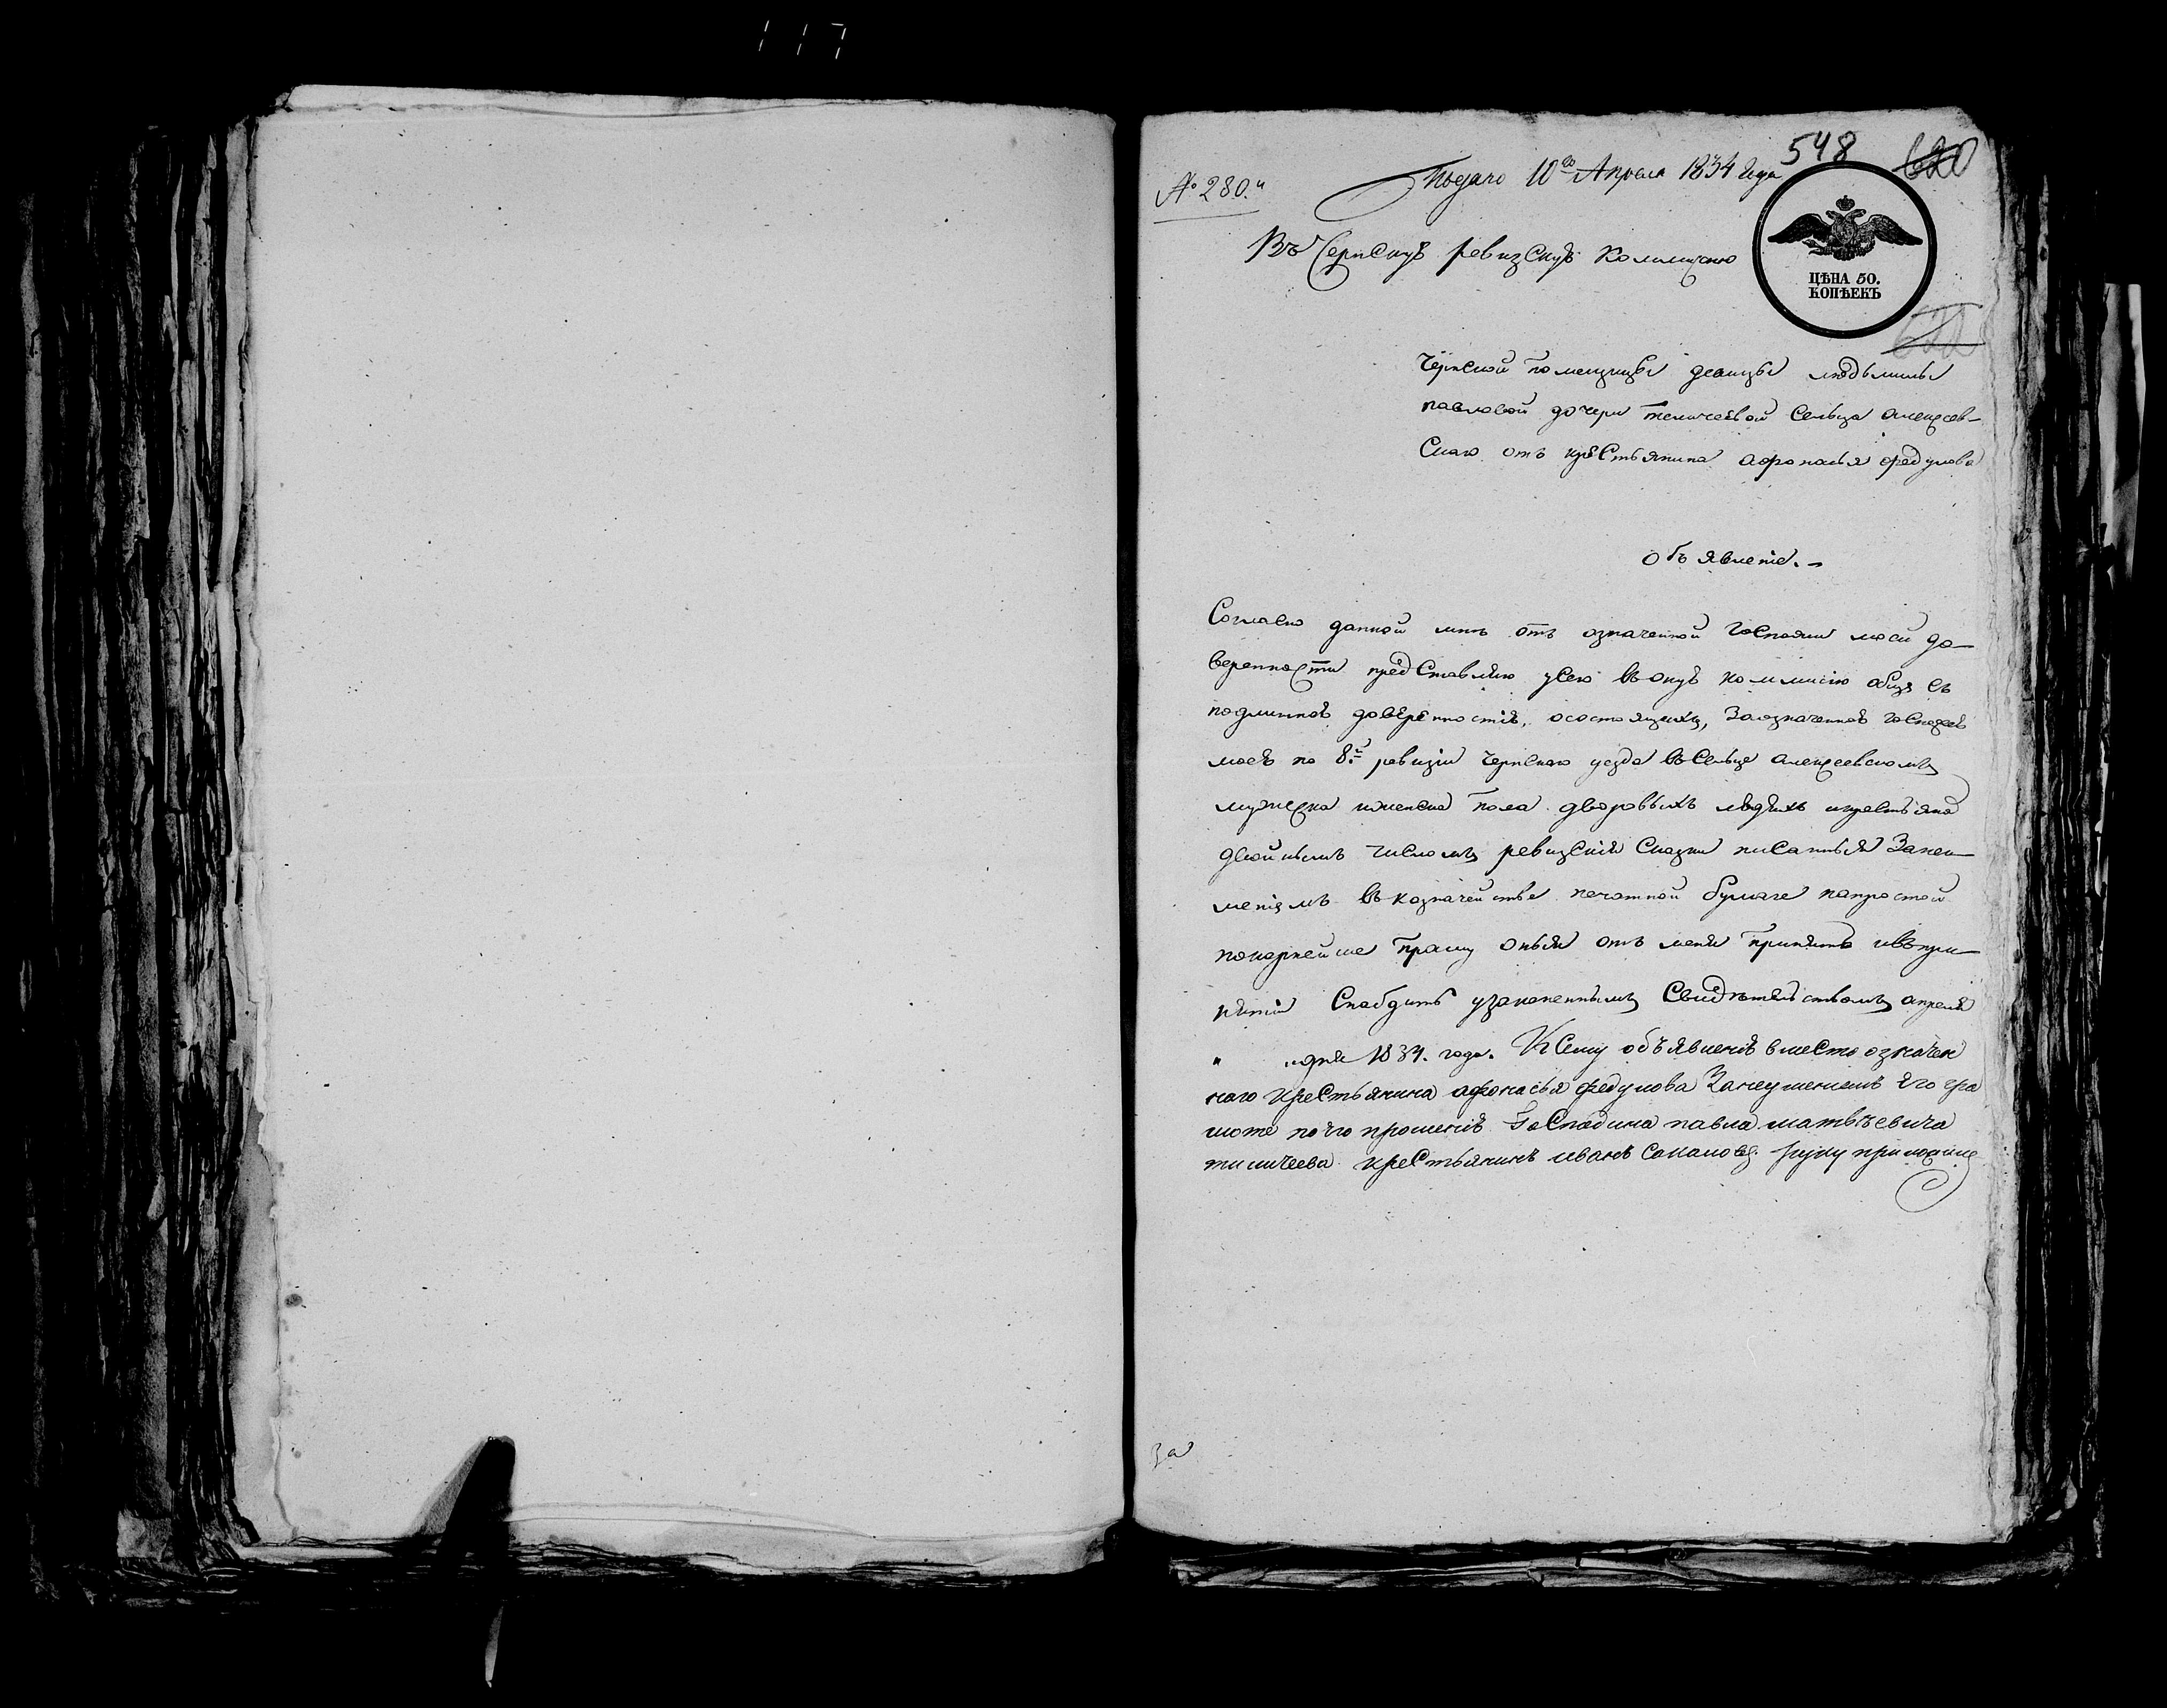 117
548
620
№ 280.й
Подано 10го Апреля 1834 года
Въ Чернскую ревизскую коммисию
ЦѢНА 50.
КОПѢЕКЪ
Чернской помещицы девицы людьмилы
павловой дочери теличеевой сельца алексеев-
скаго отъ крестьянина афонасья федулова
объявление.-
Согласно данной мне отъ означенной госпожи моей до-
веренности представляю усего въ оную коммисию обще съ
подлинною доверенностию, осостоящихъ, заозначенною госпожею
моею по 8й ревизии чернскаго уезда всельце алексеевскомъ
мужеска иженска пола дворовыхъ людяхъ икрестьяна
двойнымъ числомъ ревизския сказки писанныя занеи-
мениемъ въ казначействе печатной бумаге напростой
покорнейше прошу оныя отъ меня принять ивпри-
нятии снабдить узаконеннымъ свидѣтельствомъ апреля
" " дня 1834. года. Ксему объявению вместо означен
наго крестьянина афонасья федулова занеумениемъ его гра
моте по его прошению господина павла матвѣевича
тиличеева крестьянинъ иванъ руку приложилъ
за